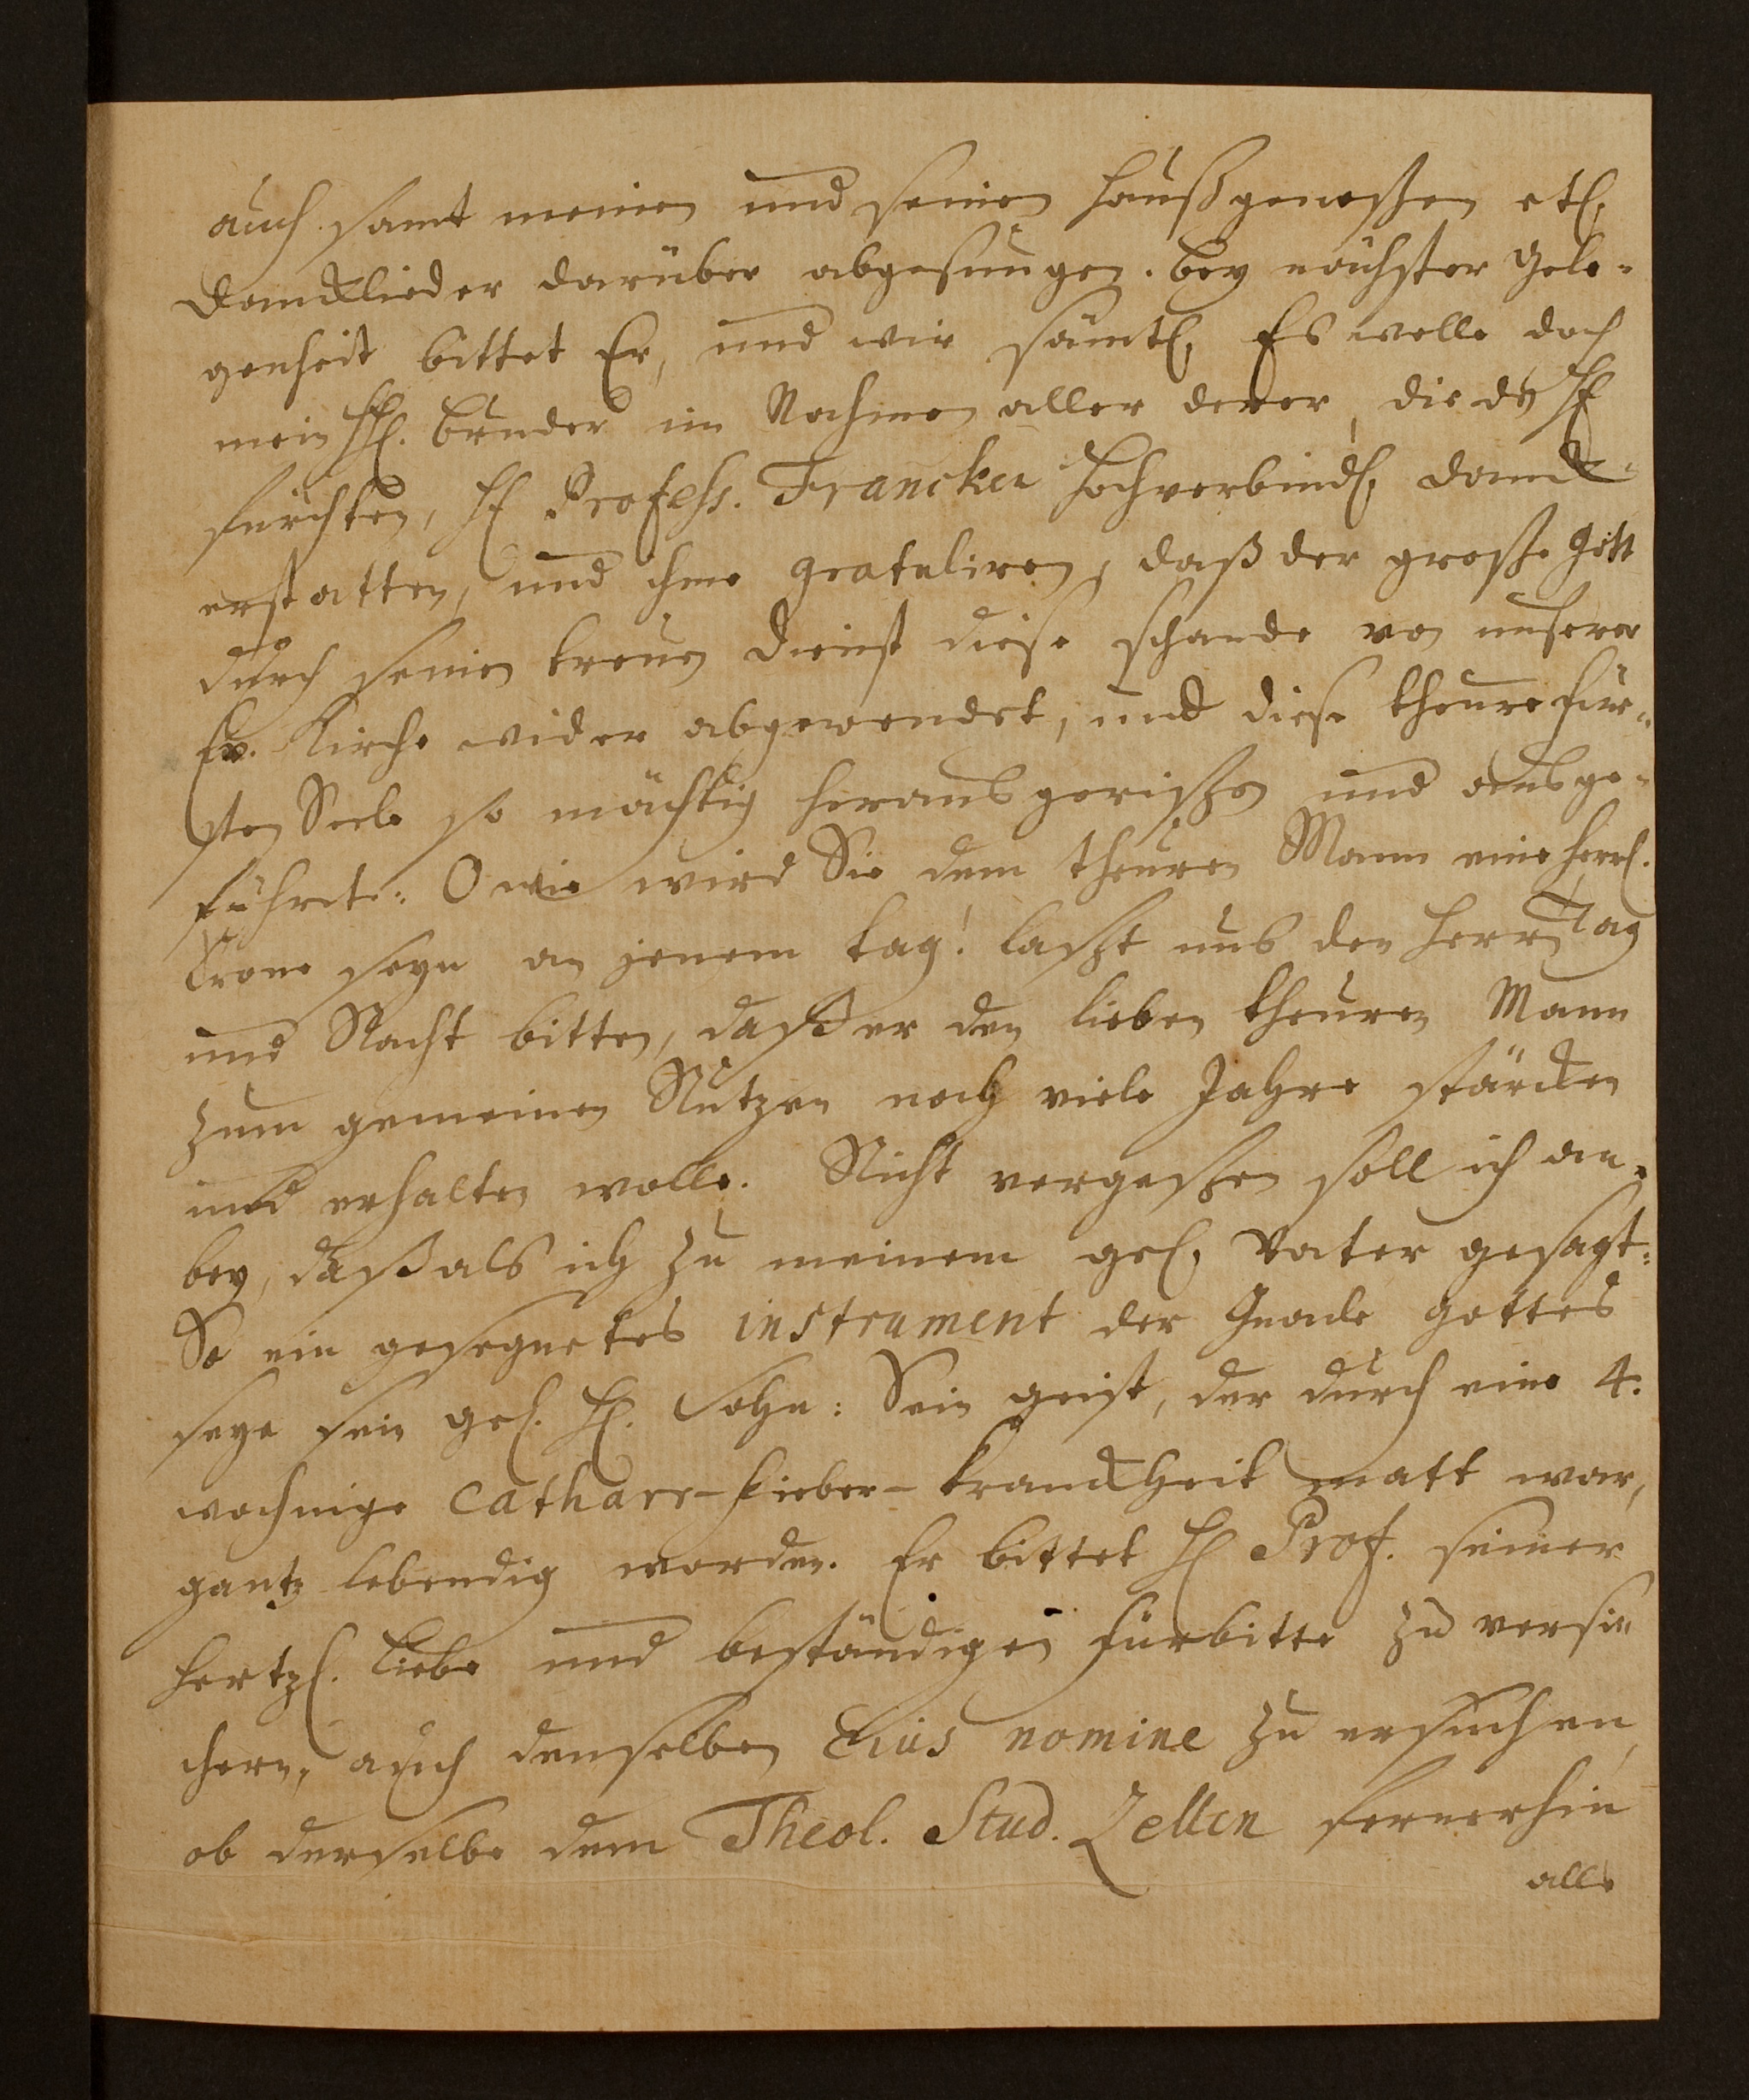 auch samt meinen und seinen haußgenoßen etl.
Dancklieder darüber abgesungen. bey nächster Gele-
genheit bittet Er, und wir sämtl. Es wolle doch
mein HE. bruder im Nahmen aller derer, die den HE
fürchten, HE Profess. Francken hochverbindl. danck
erstatten, und ihme gratuliren, daß der große Gott
durch seinen treuen dienst diese schande von unserer
Ev. Kirche wider abgewendet, und diese theure für-
sten Seele so mächtig herausgerißen und ausge-
führet: O wie wird Sie dem theuren Mann eine herrl.
Crone seyn an jenem tag! laßt uns den Herrn Tag
und Nacht bitten, daß er den lieben theuren Mann
zum gemeinen Nutzen noch viele Jahre stärcken
und erhalten wolle. Nicht vergeßen soll ich an-
bey, daß als ich zu meinem gel. Vater gesagt:
So ein gesegnetes instrument der Gnade Gottes
seye sein gel. HE. Sohn: Sein geist, der durch eine 4.
wochnige Catharr-fieber-kranckheit matt war,
gantz lebendig worden. Er bittet HE Prof. seiner
hertzl. Liebe und beständigen fürbitte zu versi-
chern, auch denselben Eius nomine zu ersuchen,
ob derselbe dem Theol. Stud. Zellen fernerhin
alle